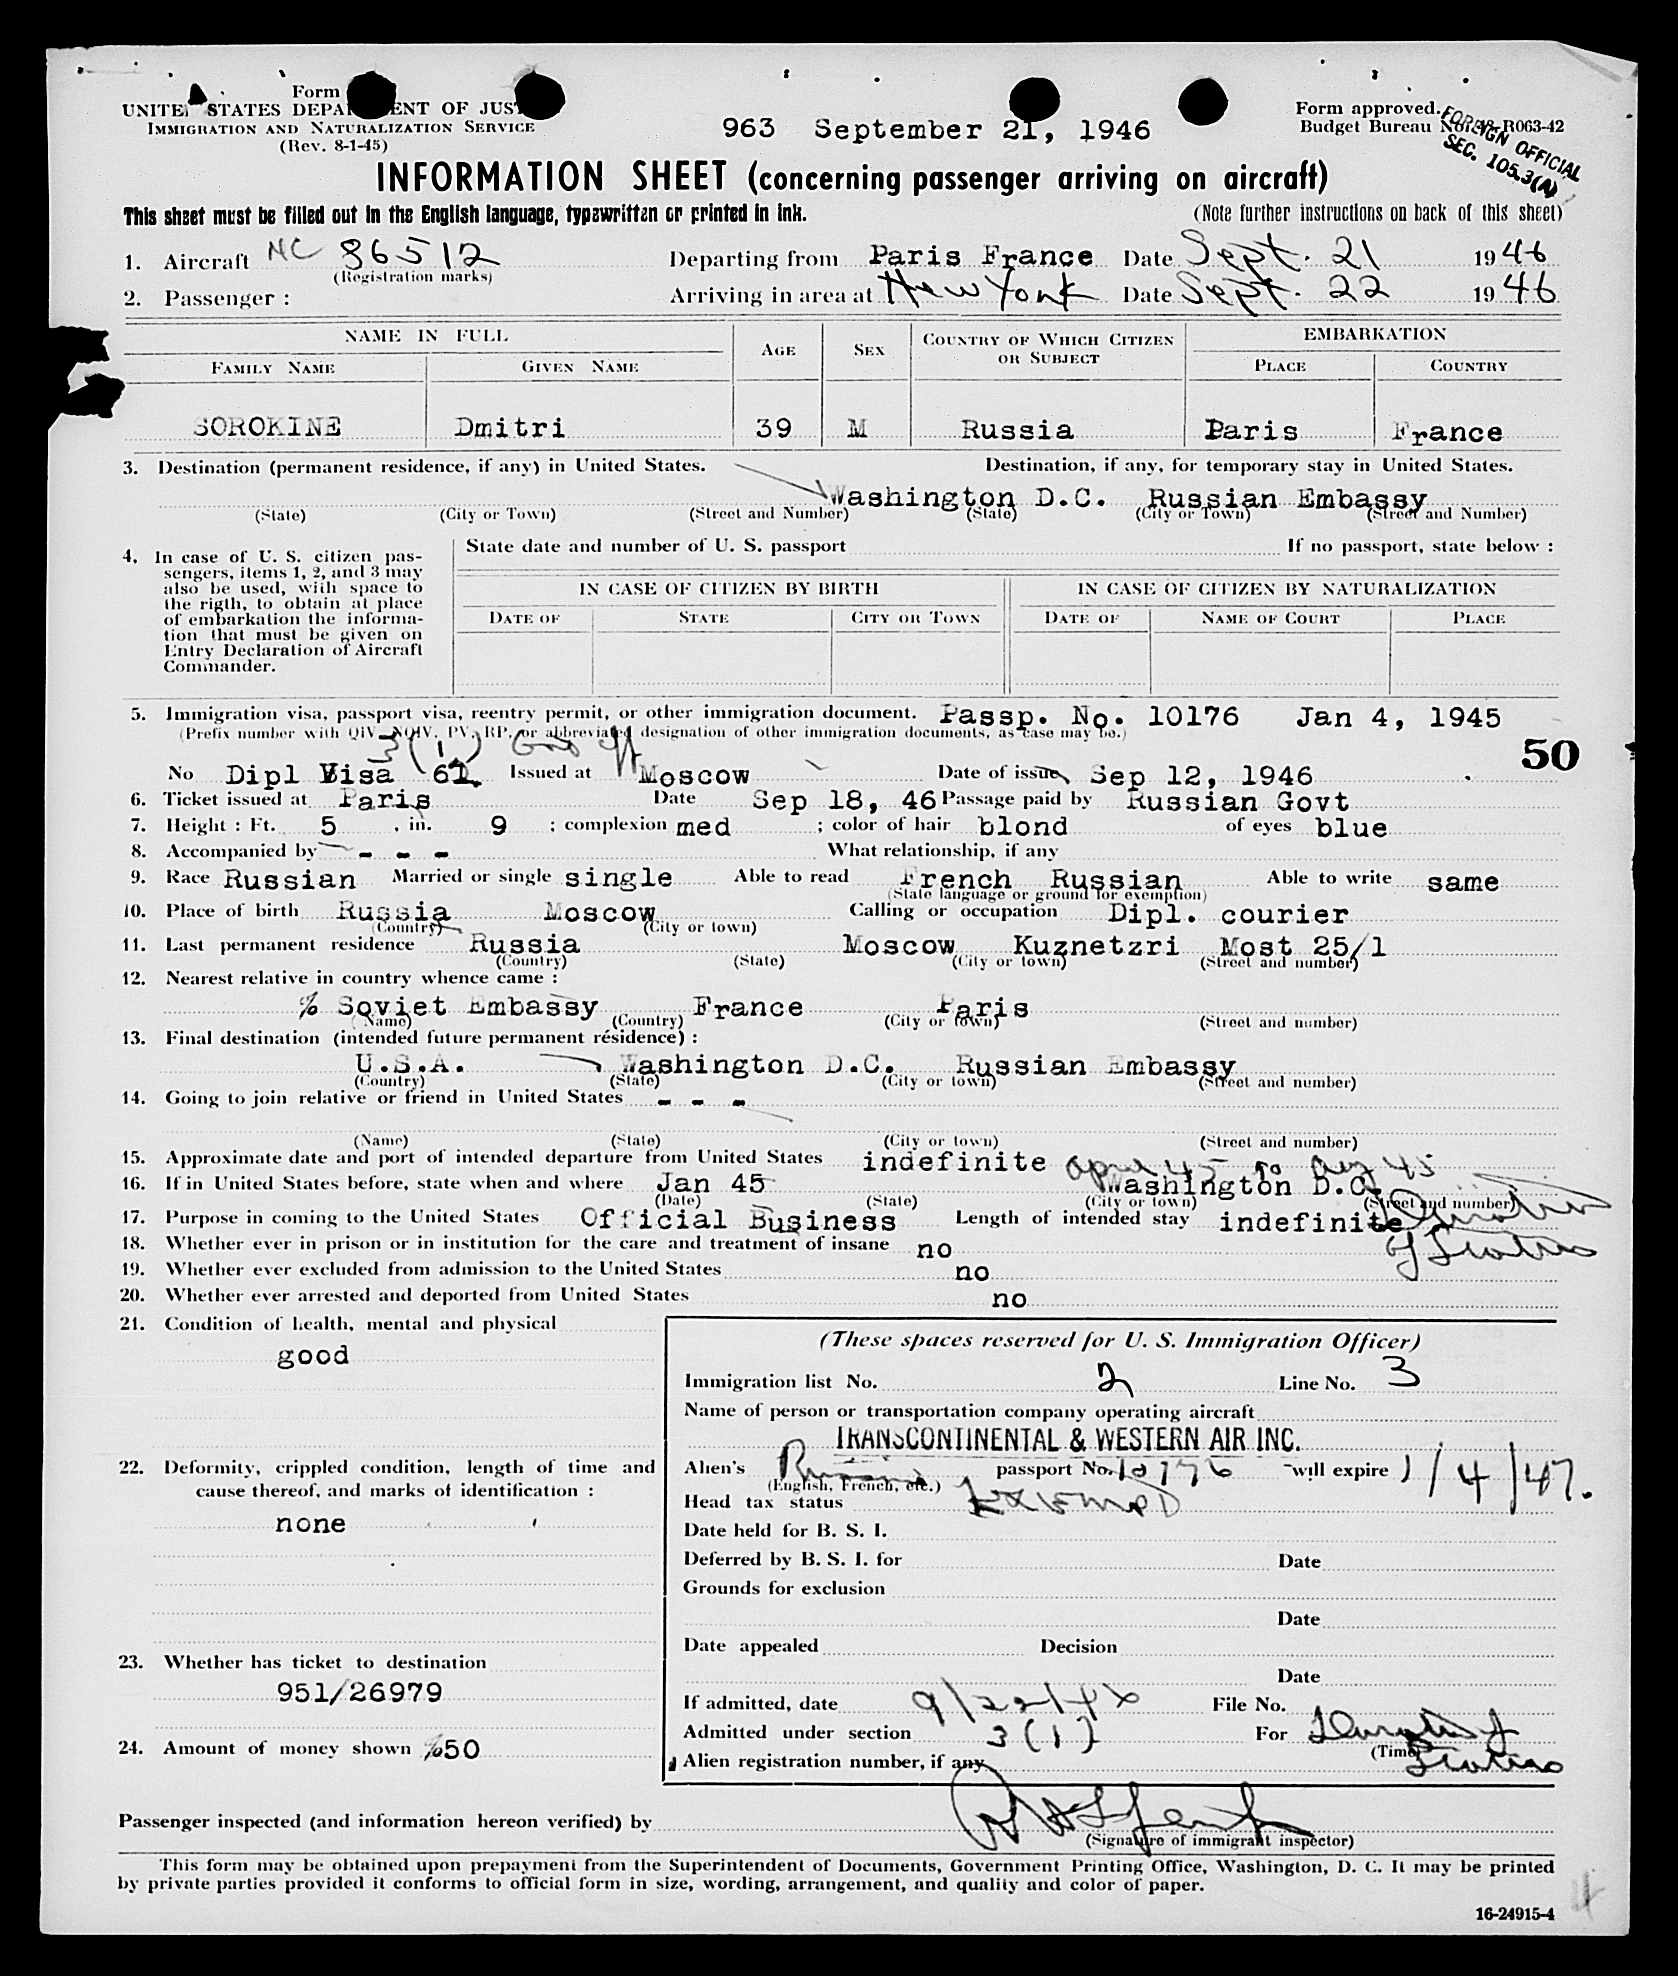 Form
UNITED STATES DEPARTMENT OF JUSTICE
IMMIGRATION AND NATURALIZATION SERVICE
(Rev. 8-1-45)
963 September 21, 1946
Form approved.
Budget Bureau No. R063-42
FOREIGN OFFICIAL
SEC. 105.3(A)
INFORMATION SHEET (concerning passenger arriving on aircraft)
This sheet must be filled out in the English language, typewritten or printed in ink. (Note further instructions on back of this sheet)
1. Aircraft NC 86512 Departing from Paris France Date Sept. 21 1946
(Registration marks)
2. Passenger : Arriving in area at New York Date Sept. 22 1946
NAME IN FULL AGE SEX COUNTRY OF WHICH CITIZEN OR SUBJECT EMBARKATION
FAMILY NAME GIVEN NAME PLACE COUNTRY
SOROKINE Dmitri 39 M Russia Paris France
3. Destination (permanent residence, if any) in United States. Destination, if any, for temporary stay in United States.
Washington D.C. Russian Embassy
(State) (City or Town) (Street and Number) (State) (City or Town) (Street and Number)
4. In case of U. S. citizen pas-
sengers, items 1, 2, and 3 may
also be used, with space to
the rigth, to obtain at place
of embarkation the informa-
tion that must be given on
Entry Declaration of Aircraft
Commander.
State date and number of U. S. passport If no passport, state below :
IN CASE OF CITIZEN BY BIRTH IN CASE OF CITIZEN BY NATURALIZATION
DATE OF STATE CITY OR TOWN DATE OF NAME OF COURT PLACE
5. Immigration visa, passport visa, reentry permit, or other immigration document. Passp. No. 10176 Jan 4, 1945
(Prefix number with QIV, NQIV, PV, RP, or abbreviated designation of other immigration documents, as case may be.)
3(1) Gov off
50
No Dipl Visa 61 Issued at Moscow Date of issue Sep 12, 1946
6. Ticket issued at Paris Date Sep 18, 46 Passage paid by Russian Govt
7. Height : Ft. 5 , in. 9 ; complexion med ; color of hair blond of eyes blue
8. Accompanied by - - - What relationship, if any
9. Race Russian Married or single single Able to read French Russian Able to write same
(State language or ground for exemption)
10. Place of birth Russia Moscow Calling or occupation Dipl. courier
(Country) (City or town)
11. Last permanent residence Russia Moscow Kuznetzri Most 25/1
(Country) (State) (City or town) (Street and number)
12. Nearest relative in country whence came :
% Soviet Embassy France Paris
(Name) (Country) (City or town) (Street and number)
13. Final destination (intended future permanent résidence) :
U.S.A. Washington D.C. Russian Embassy
(Country) (State) (City or town) (Street and number)
14. Going to join relative or friend in United States - - -
(Name) (State) (City or town) (Street and number)
15. Approximate date and port of intended departure from United States indefinite April 45 to Aug 45
16. If in United States before, state when and where Jan 45 Washington D.C.
(Date) (State) (City or town) (Street and number)
17. Purpose in coming to the United States Official Business Length of intended stay indefinite Duration
of Status
18. Whether ever in prison or in institution for the care and treatment of insane no
19. Whether ever excluded from admission to the United States no
20. Whether ever arrested and deported from United States no
21. Condition of health, mental and physical
good
22. Deformity, crippled condition, length of time and
cause thereof, and marks of identification :
none
23. Whether has ticket to destination
951/26979
24. Amount of money shown %50
(These spaces reserved for U. S. Immigration Officer)
Immigration list No. 2 Line No. 3
Name of person or transportation company operating aircraft
TRANSCONTINENTAL & WESTERN AIR INC.
Alien's Russian passport No. 10176 will expire 1/4/47.
(English, French, etc.)
Head tax status Exempt
Date held for B. S. I.
Deferred by B. S. I. for Date
Grounds for exclusion
Date
Date appealed Decision
Date
If admitted, date 9/22/46 File No.
Admitted under section 3(1) For Duration of
(Time) Status
Alien registration number, if any
Passenger inspected (and information hereon verified) by
(Signature of immigrant inspector)
This form may be obtained upon prepayment from the Superintendent of Documents, Government Printing Office, Washington, D. C. It may be printed
by private parties provided it conforms to official form in size, wording, arrangement, and quality and color of paper.
16-24915-4
4